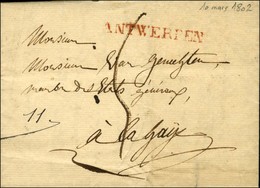 10 mars 1802
ANTWERPEN
Monsieur
Monsieur Van
membre des Etats généraux,
11
5
à la haije